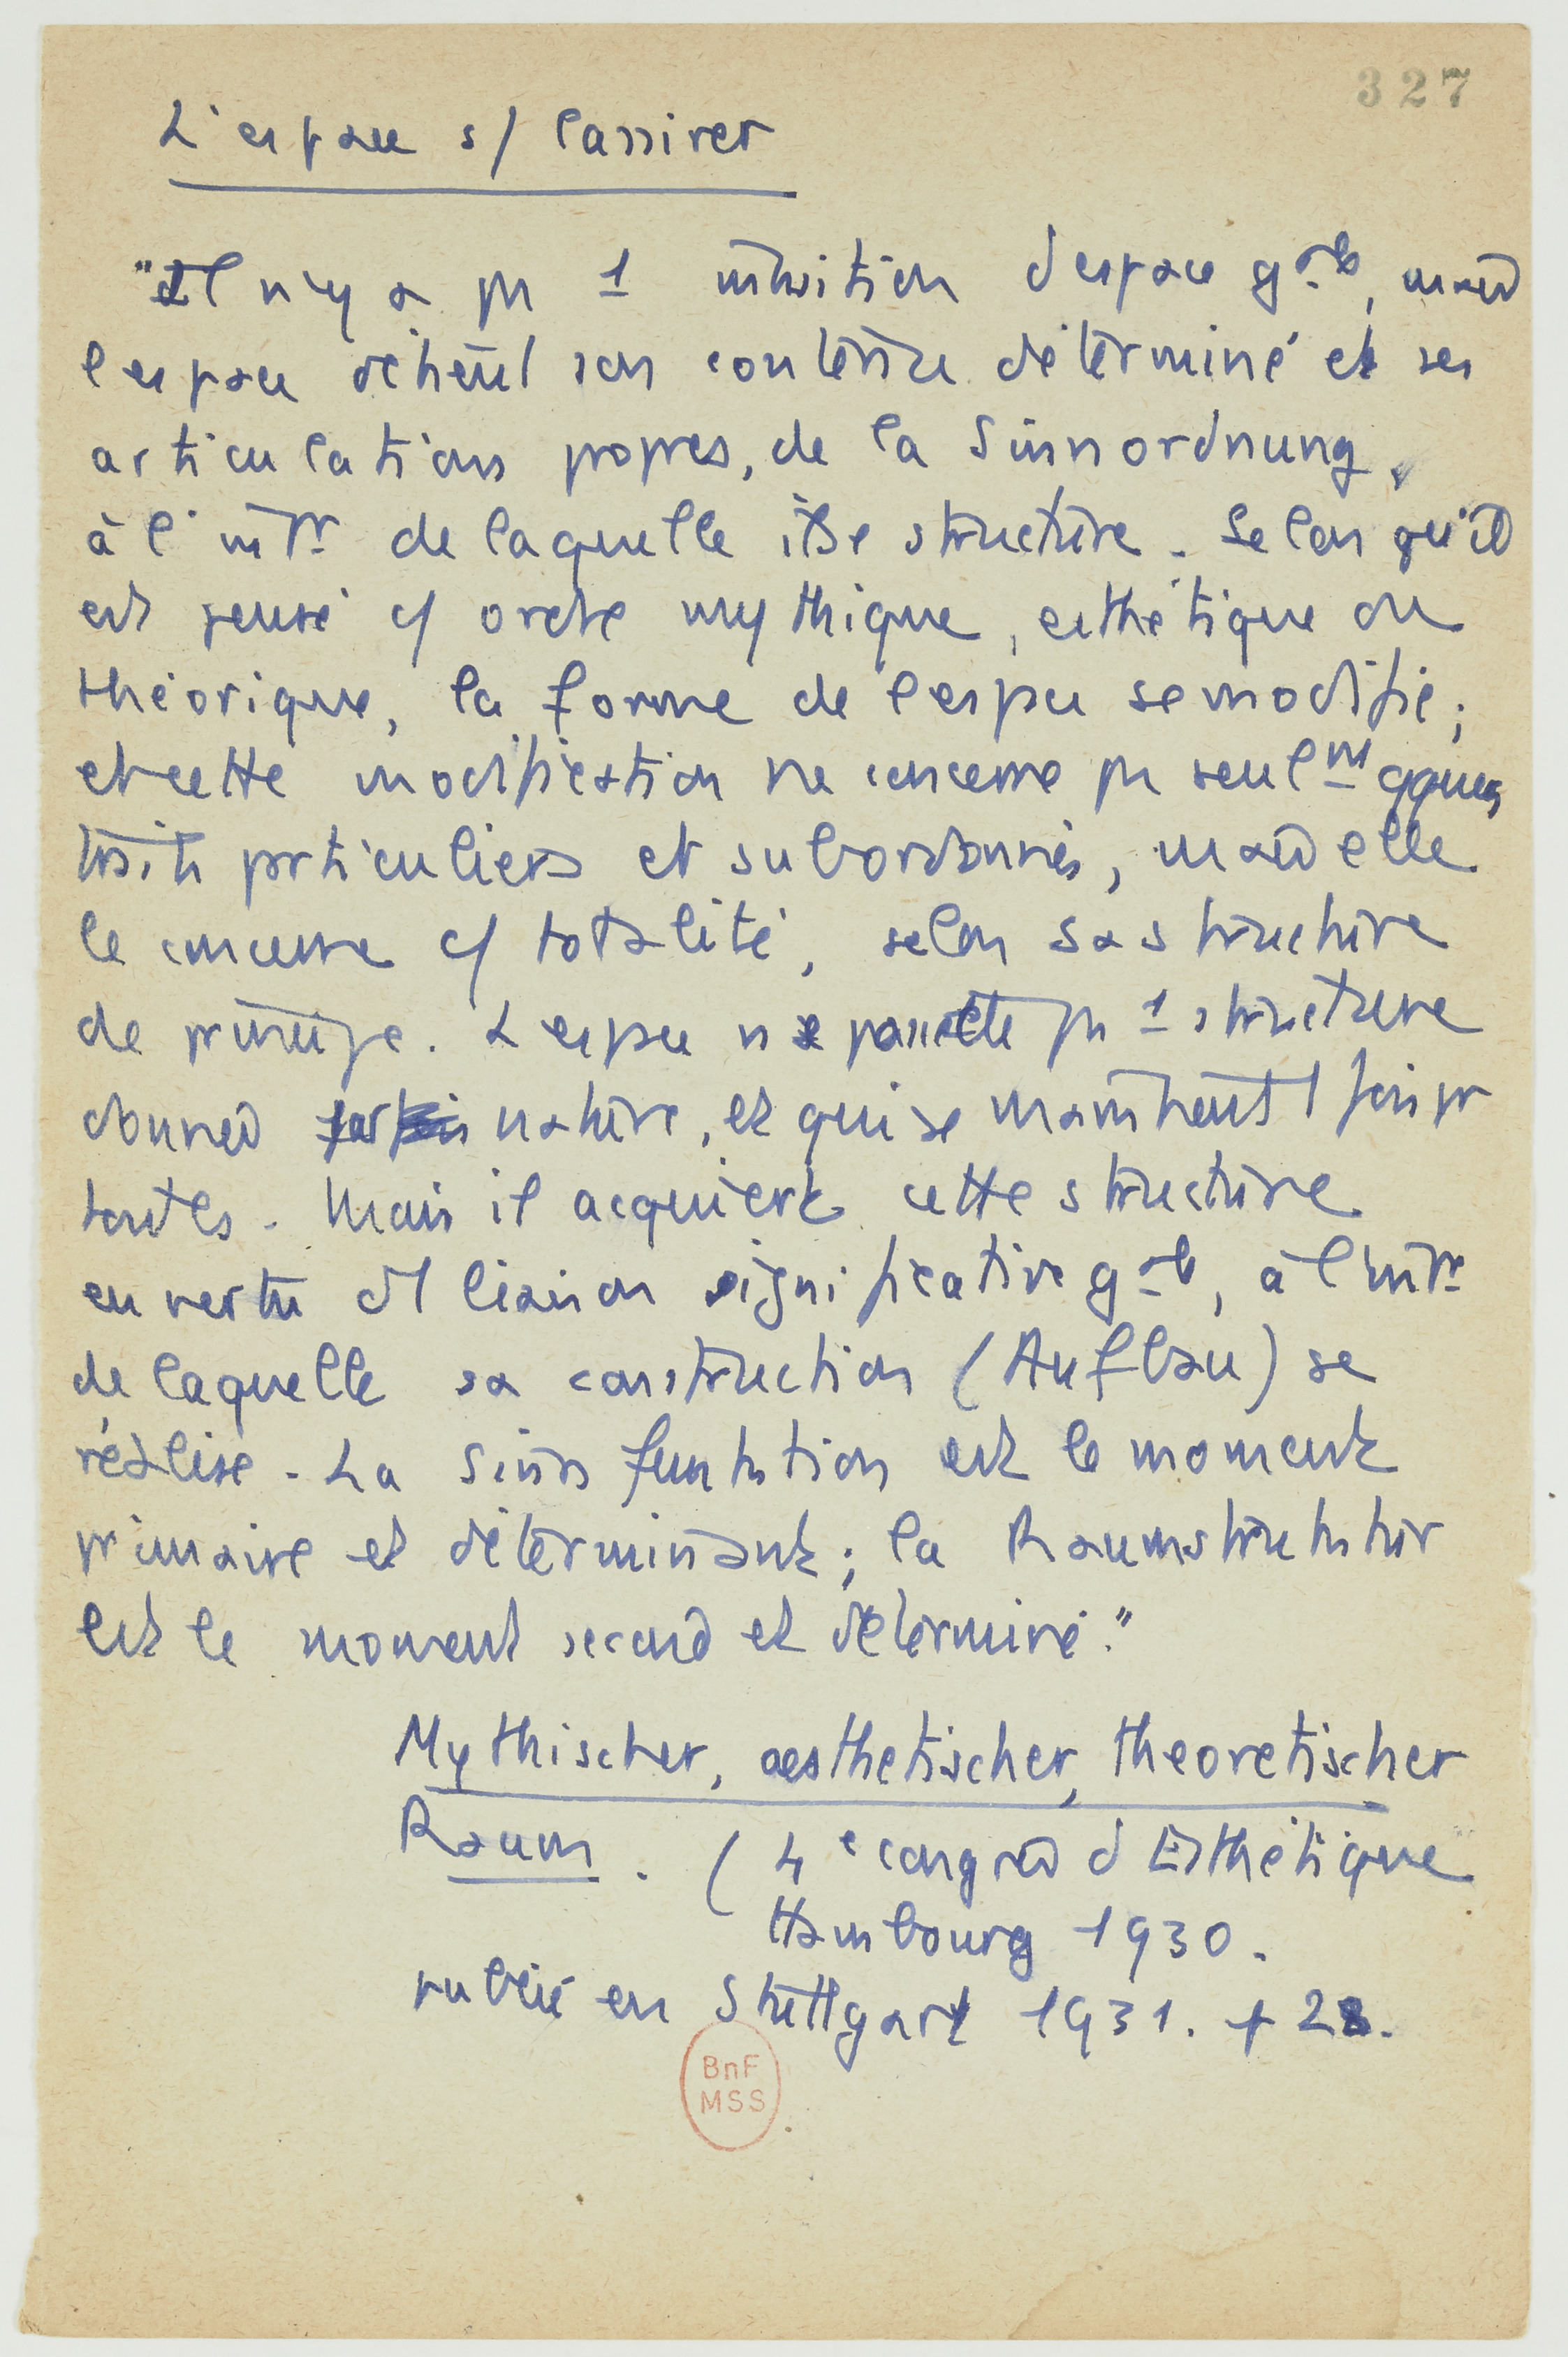 327
L'espace s/ Cassirer
"Il n'y a pas 1 intuition d'espace gale, mais
l'espace détient son contenu déterminé et ses
articulations propres, de la Sinnordnung,
à l'intr de laquelle il se structure. Selon qu'il
est pensé c/ ordre mythique, esthétique ou
théorique, la forme de l'espace se modifie ;
et cette modification ne concerne pas seulmt qques
traits particuliers et subordonnés, mais elle
le concerne c/ totalité, selon sa structure
de principe. L'espace ne possède pas 1 structure
donnée par nature, et qui se maintient 1 fois pr
toutes. Mais il acquiert cette structure
en vertu d'1 liaison significative gale, à l'intr
de laquelle sa construction (Aufbau) se
réalise. La Sinnfunktion est le moment
primaire et déterminant ; la Raumstruktur
est le moment second et déterminé."
Mythischer, aesthetischer, theoretischer
Raum. ( 4e congrès d'Esthétique
Hambourg 1930.
publié en Stuttgart 1931. p 28.
BnF
MSS